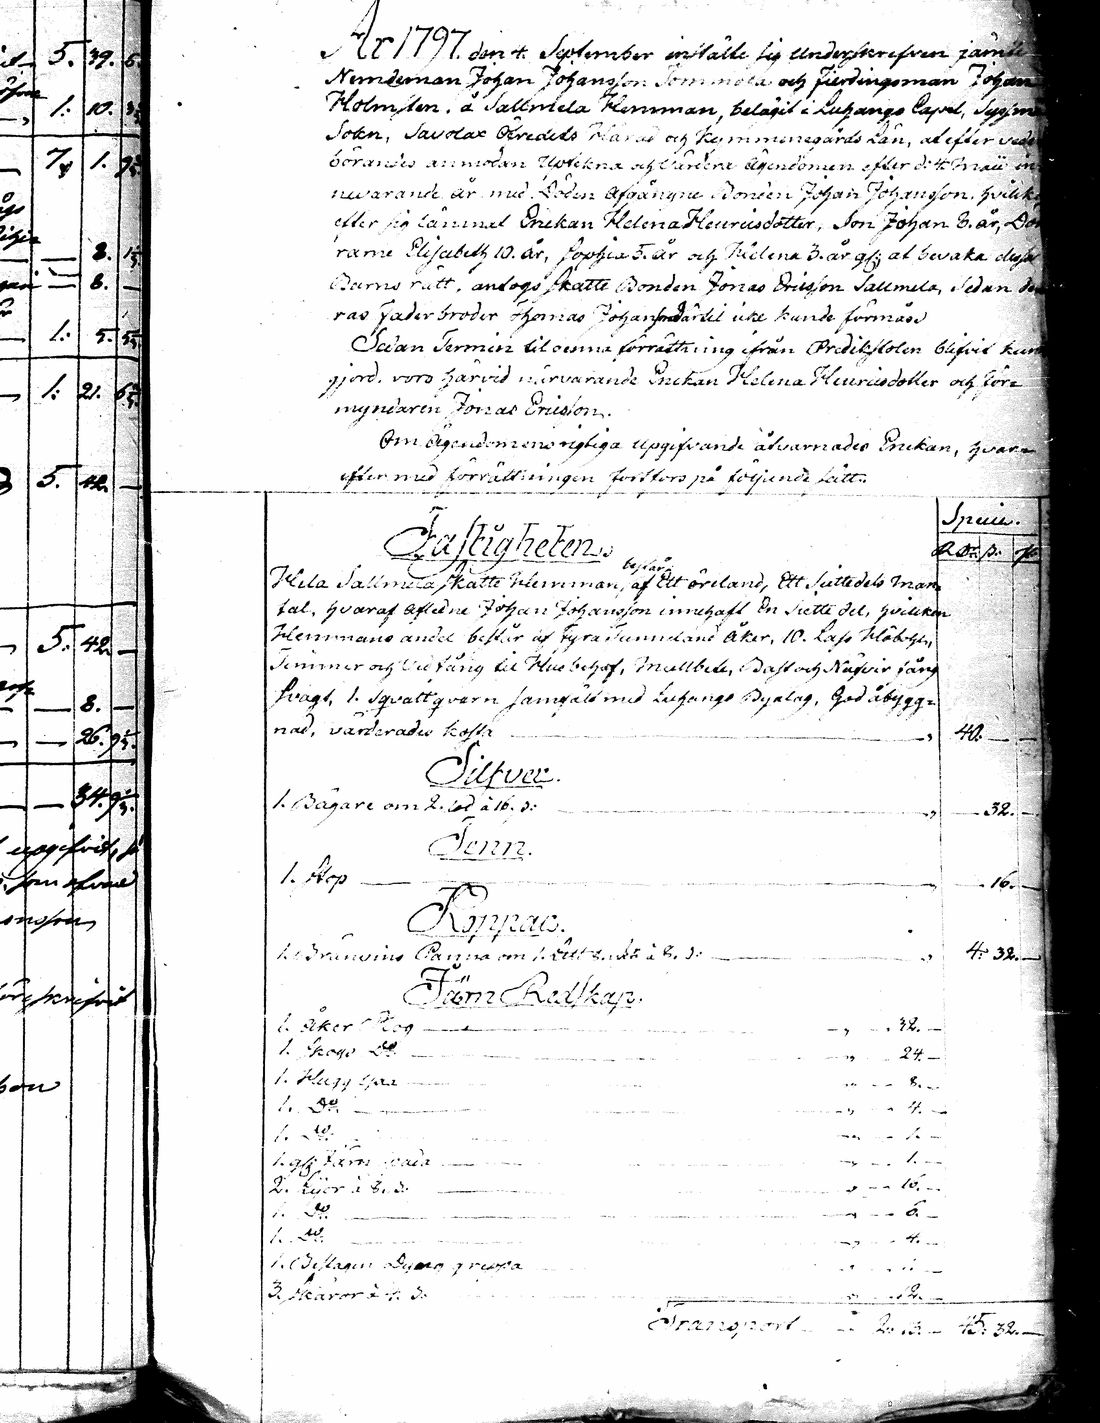 År 1797. den 4. September instälte sig Underskrefven jämte
Nemdeman Johan Johansson Tommola och fierdingsman Johan
Holmsten, å Sallmela Hemman, belägit i Luhango Capel, Sysmä
Sokn, Savolax Öfredels Härad och Kymmenegårds Län, at efter veder
börandes anmodan Uptekna och Värdera Ägendomen efter d: 4. Maii in
nevarande år med Döden Afgångne Bonden Johan Johansson, hvilken
efter sig lämnat Enekan Helena Henricsdotter, Son Johan 8. år, Dot
rarne Elisabeth 10. år, Sophia 5. år och Helena 3. år gl; at bevaka dessa
Barns rätt, antogs skatte Bonden Jonas Ericsson Sallmela, sedan de
ras Fader broder Thomas Johansson därtil icke kunde förmås.
Sedan Termin til denna förrättning ifrån Predikstolen blifvit kun
gjord, voro härvid närvarande Enekan Helena Henricsdotter och För=
myndaren Jonas Ericsson.
Om Ägendomens rigtiga upgifvande åtvarnades Enekan, hvar=
efter med förrättningen fortfors på följande sätt.
Specie.
Fastigheten.
R.Dr. s. r.
består
Hela Sallmela skatte Hemman, af Ett öresland, Ett Siettedels Man
tal, hvaraf Afledne Johan Johansson innehaft En siette del, hvilken
Hemmans andel består af Fyra Tunneland Åker, 10. Lass Höbohl,
Timmer och Ved fång til Husbehof, Mullbete, Bast och Näfver fång
svagt, 1. Sqvattqvarn samfält med Luhango Byalag, God åbygg=
nad, värderades kosta „ 40. — —
Silfver.
1. Bägare om 2. lod à 16. s: „ — 32. —
Tenn.
1. Stop — 16. —
Koppar.
1. Bränvins Panna om 1. à 8. s: „ 4: 32. —
Järn Redskap.
1. Åker Plog „ 32. —
1. Skogs Do. „ 24. —
1. Hugg yxa „ 8. —
1. Do. „ 4. —
1. Do. „ 1. —
1. Järn spada „ 1. —
2. Lijor à 8. s: „ 16. —
1. Do. „ 6. —
1. Do. „ 4. —
1. Beslagen Dyng greppa
3. Skäror à 4. s: „ 12. —
Transport 2. 13. — 45: 32. —
5. 39. 6.
1. 10.
7 1.
8.
8. —
1. 5.
1: 21.
5. 42. —
5: 42. —
8. —
26.
34.
upgifvit, så
som
onsson
föreskrifvit